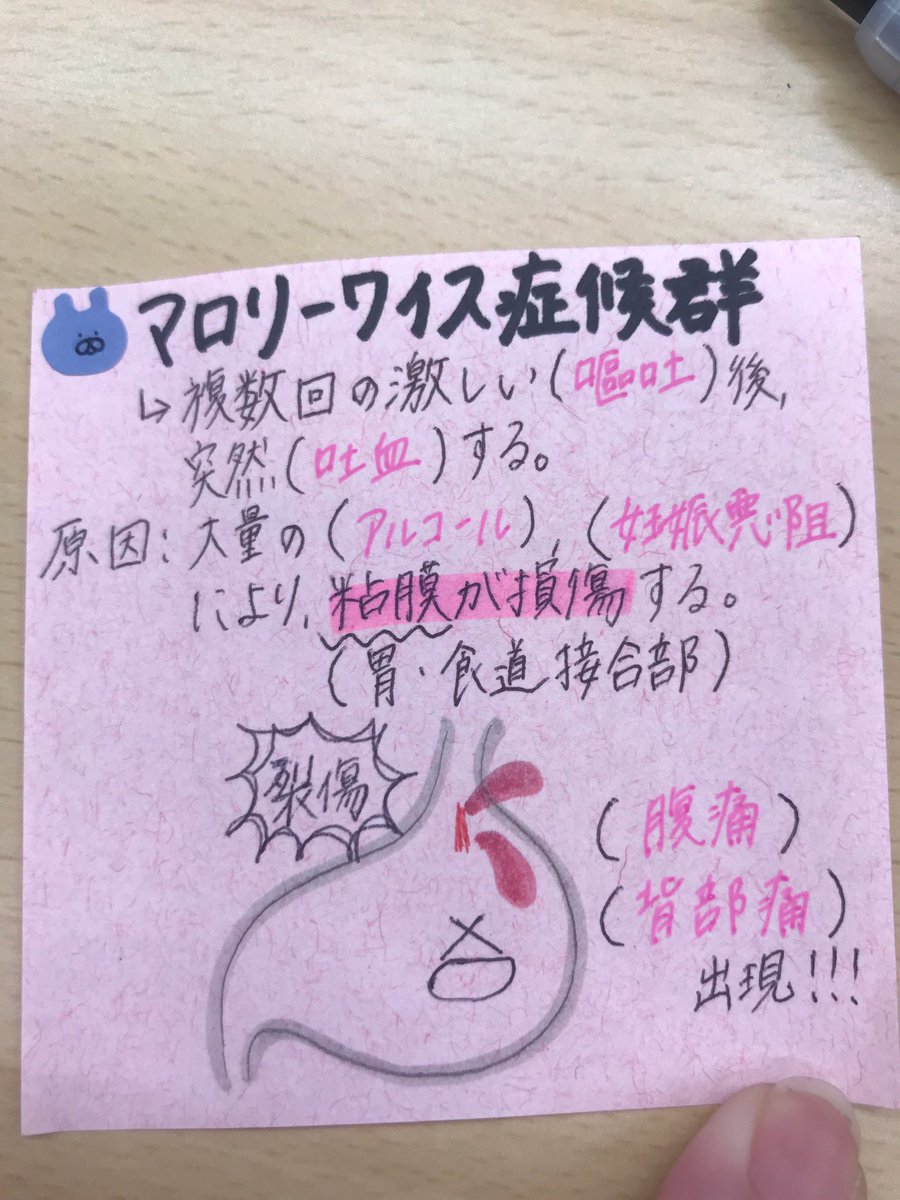 マロリーワイス症候群
↳複数回の激しい(嘔吐)後,
突然(吐血)する。
原因:大量の(アルコール),(妊娠悪阻)
により,粘膜が損傷する。
(胃・食道接合部)
裂傷
(腹痛)
(背部痛)
出現!!!